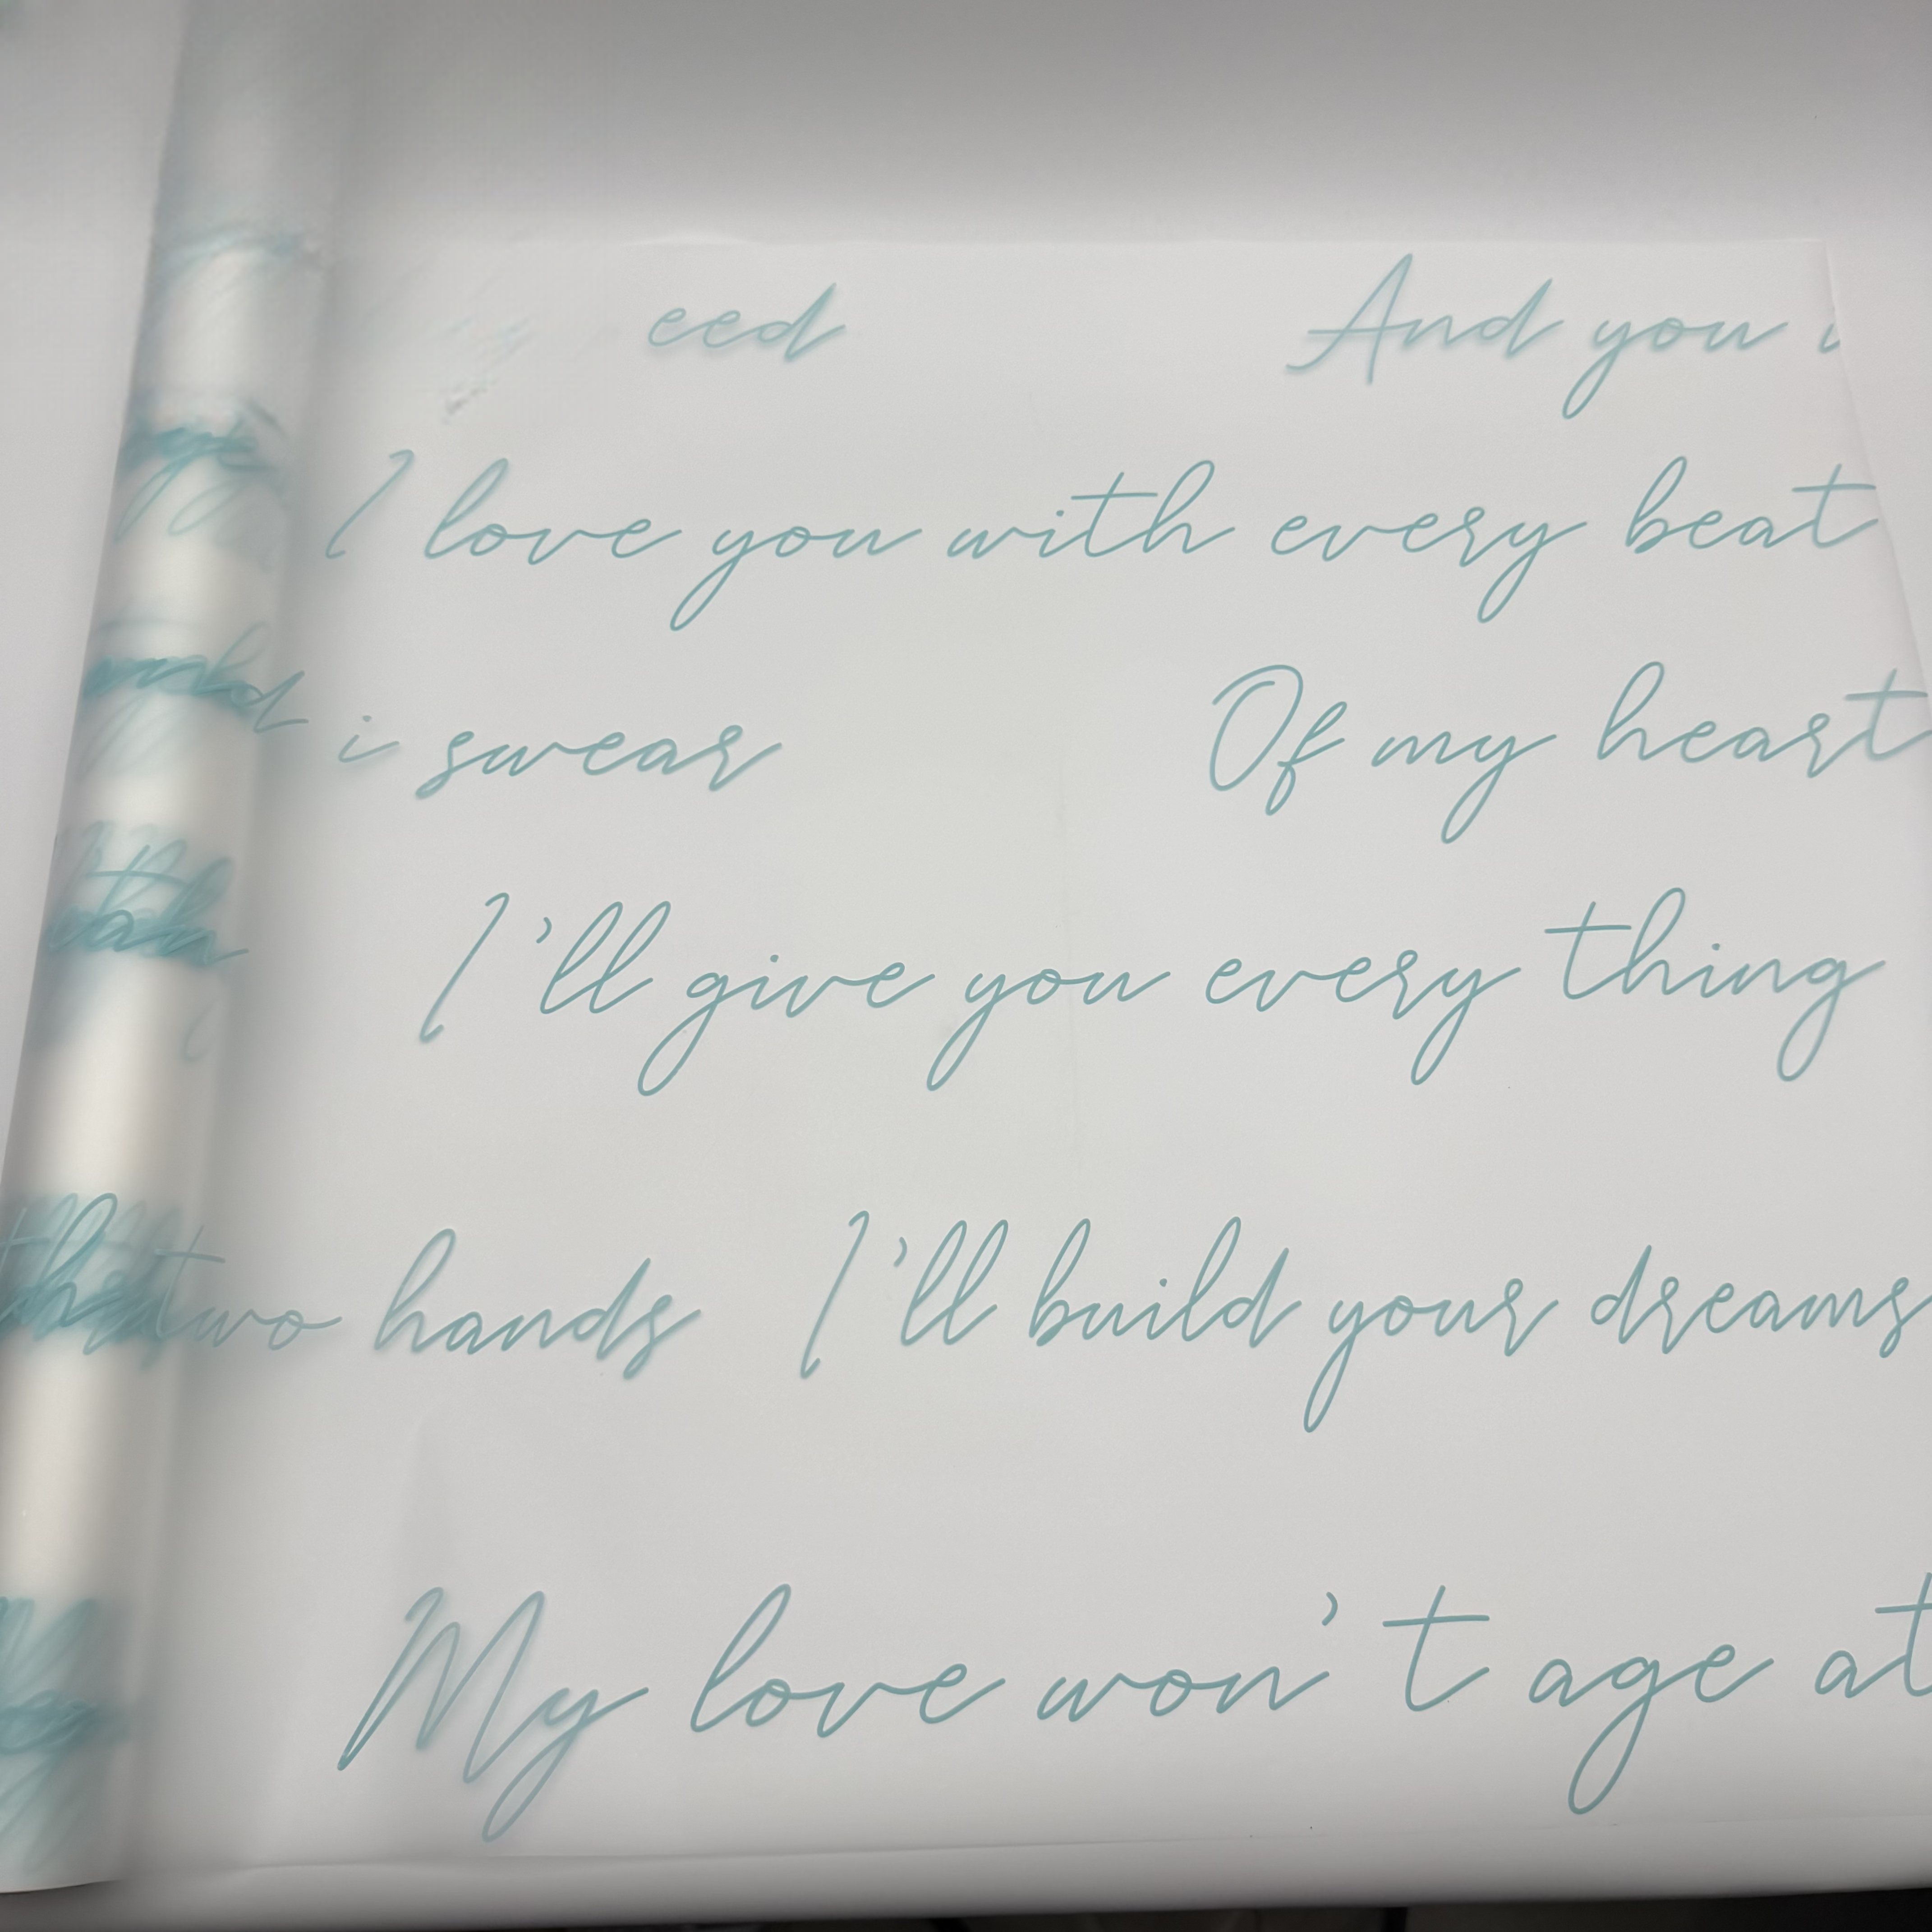 eed And you
I love you with every beat
i swear Of my heart
I'll give you every thing
two hands I'll build your dreams
My love won't age at